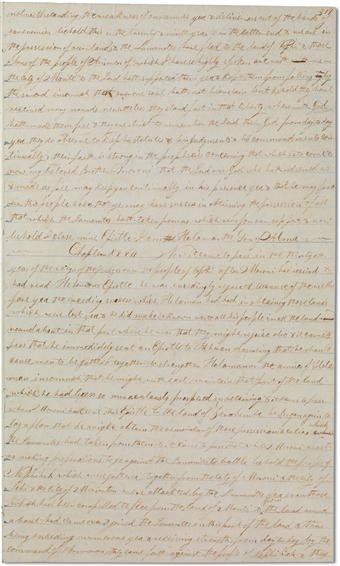 notwithstanding the weakness of our armies yea & deliver us out of the hands
our enemies behold this is the twenty & ninth year in the latter end & we are in
the possession of our lands & the Lamanites have fled to the land of Nephi & those
sons of the people of Ammon of which I have so highly spoken are with me in
the city of Manti & the Lord hath supported them yea & kept them from falling by
the sword insomuch that even one soul hath not been slain but behold they have
received many wounds nevertheless they stand fast in that liberty wherewith God
hath made them free & they are strict to remember the Lord their God from day to day
yea they do observe to keep his statutes & his judgments & his commandments conti
nually & their faith is strong in the prophecies concerning that which is to come &
now my beloved Brother Moroni that the Lord our God who hath redeemed us
& made us free may keep you continually in his presence yea & that he may favor
this people even that ye may have success in obtaining the possession of all
that which the Lamanites hath taken from us which was for our support & now
behold I close mine Epistle I am Helaman the Son of Alma
Chapter XXVII Now it came to pass in the thirtieth
year of the reign of the judges over the people of Nephi after Moroni had received &
had read Helaman's Epistle he was exceedingly rejoiced because of the wel
fare yea the exceeding success which Helaman had had in obtaining those lands
which were lost yea & he did make it known unto all his people in all the land
round about in that part where he was that they might rejoice also & it came to
pass that he immediately sent an Epistle to Pahoran desireing that he should
cause men to be gathered together to strengthen Helaman or the armies of Hela
man insomuch that he might with ease maintain that part of the land
which he had been so miraculously prospered in retaining & it came to pass
when Moroni had sent this Epistle to the land of Zarahemla he began again to
lay a plan that he might obtain the remainder of those possessions & cities which
the Lamanites had taken from them & it came to pass that while Moroni was thus
making preparations to go against the Lamanites to battle behold the people of
Nephihah which were gathered together from the city of Moroni & the city of
Lehi & the city of Morianton were attacked by the Lamanites yea even those
which had been compelled to flee from the land of Manti & from the land round
about had came over & joined the Lamanites in this part of the land & thus
being exceeding numerous yea & receiving strength from day to day by the
command of Ammoron they came forth against the people of Nephihah & they